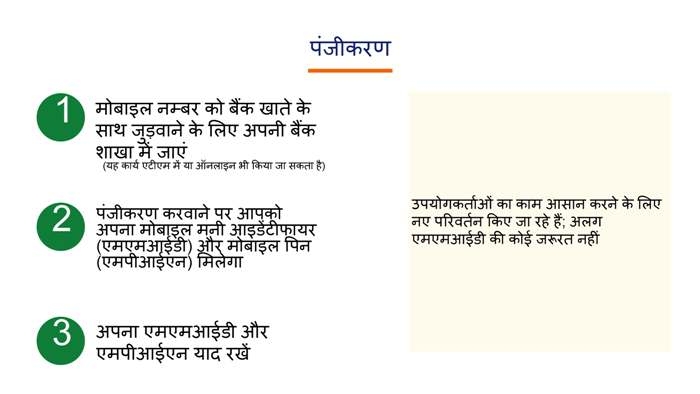 पंजीकरण
1
मोबाइल नम्बर को बैंक खाते के
साथ जुड़वाने के लिए अपनी बैंक
शाखा में जाएं
(यह कार्य एटीएम में या ऑनलाइन भी किया जा सकता है)
2
पंजीकरण करवाने पर आपको
अपना मोबाइल मनी आइडेंटीफायर
(एमएमआईडी) और मोबाइल पिन
(एमपीआईएन) मिलेगा
3
अपना एमएमआईडी और
एमपीआईएन याद रखें
उपयोगकर्ताओं का काम आसान करने के लिए
नए परिवर्तन किए जा रहे हैं; अलग
एमएमआईडी की कोई जरूरत नहीं